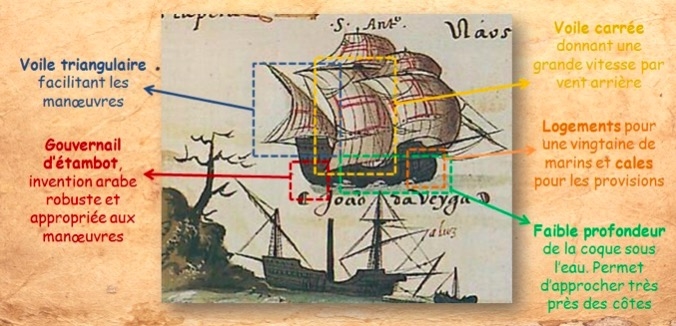 ·S· Antº·
Náos
Voile triangulaire
facilitant les
manœuvres
Gouvernail
d'étambot,
invention arabe
robuste et
appropriée aux
manœuvres
Voile carrée
donnant une
grande vitesse par
vent arrière
Logements pour
une vingtaine de
marins et cales
pour les provisions
Faible profondeur
de la coque sous
l'eau. Permet
d'approcher très
près des côtes
João da Veyga